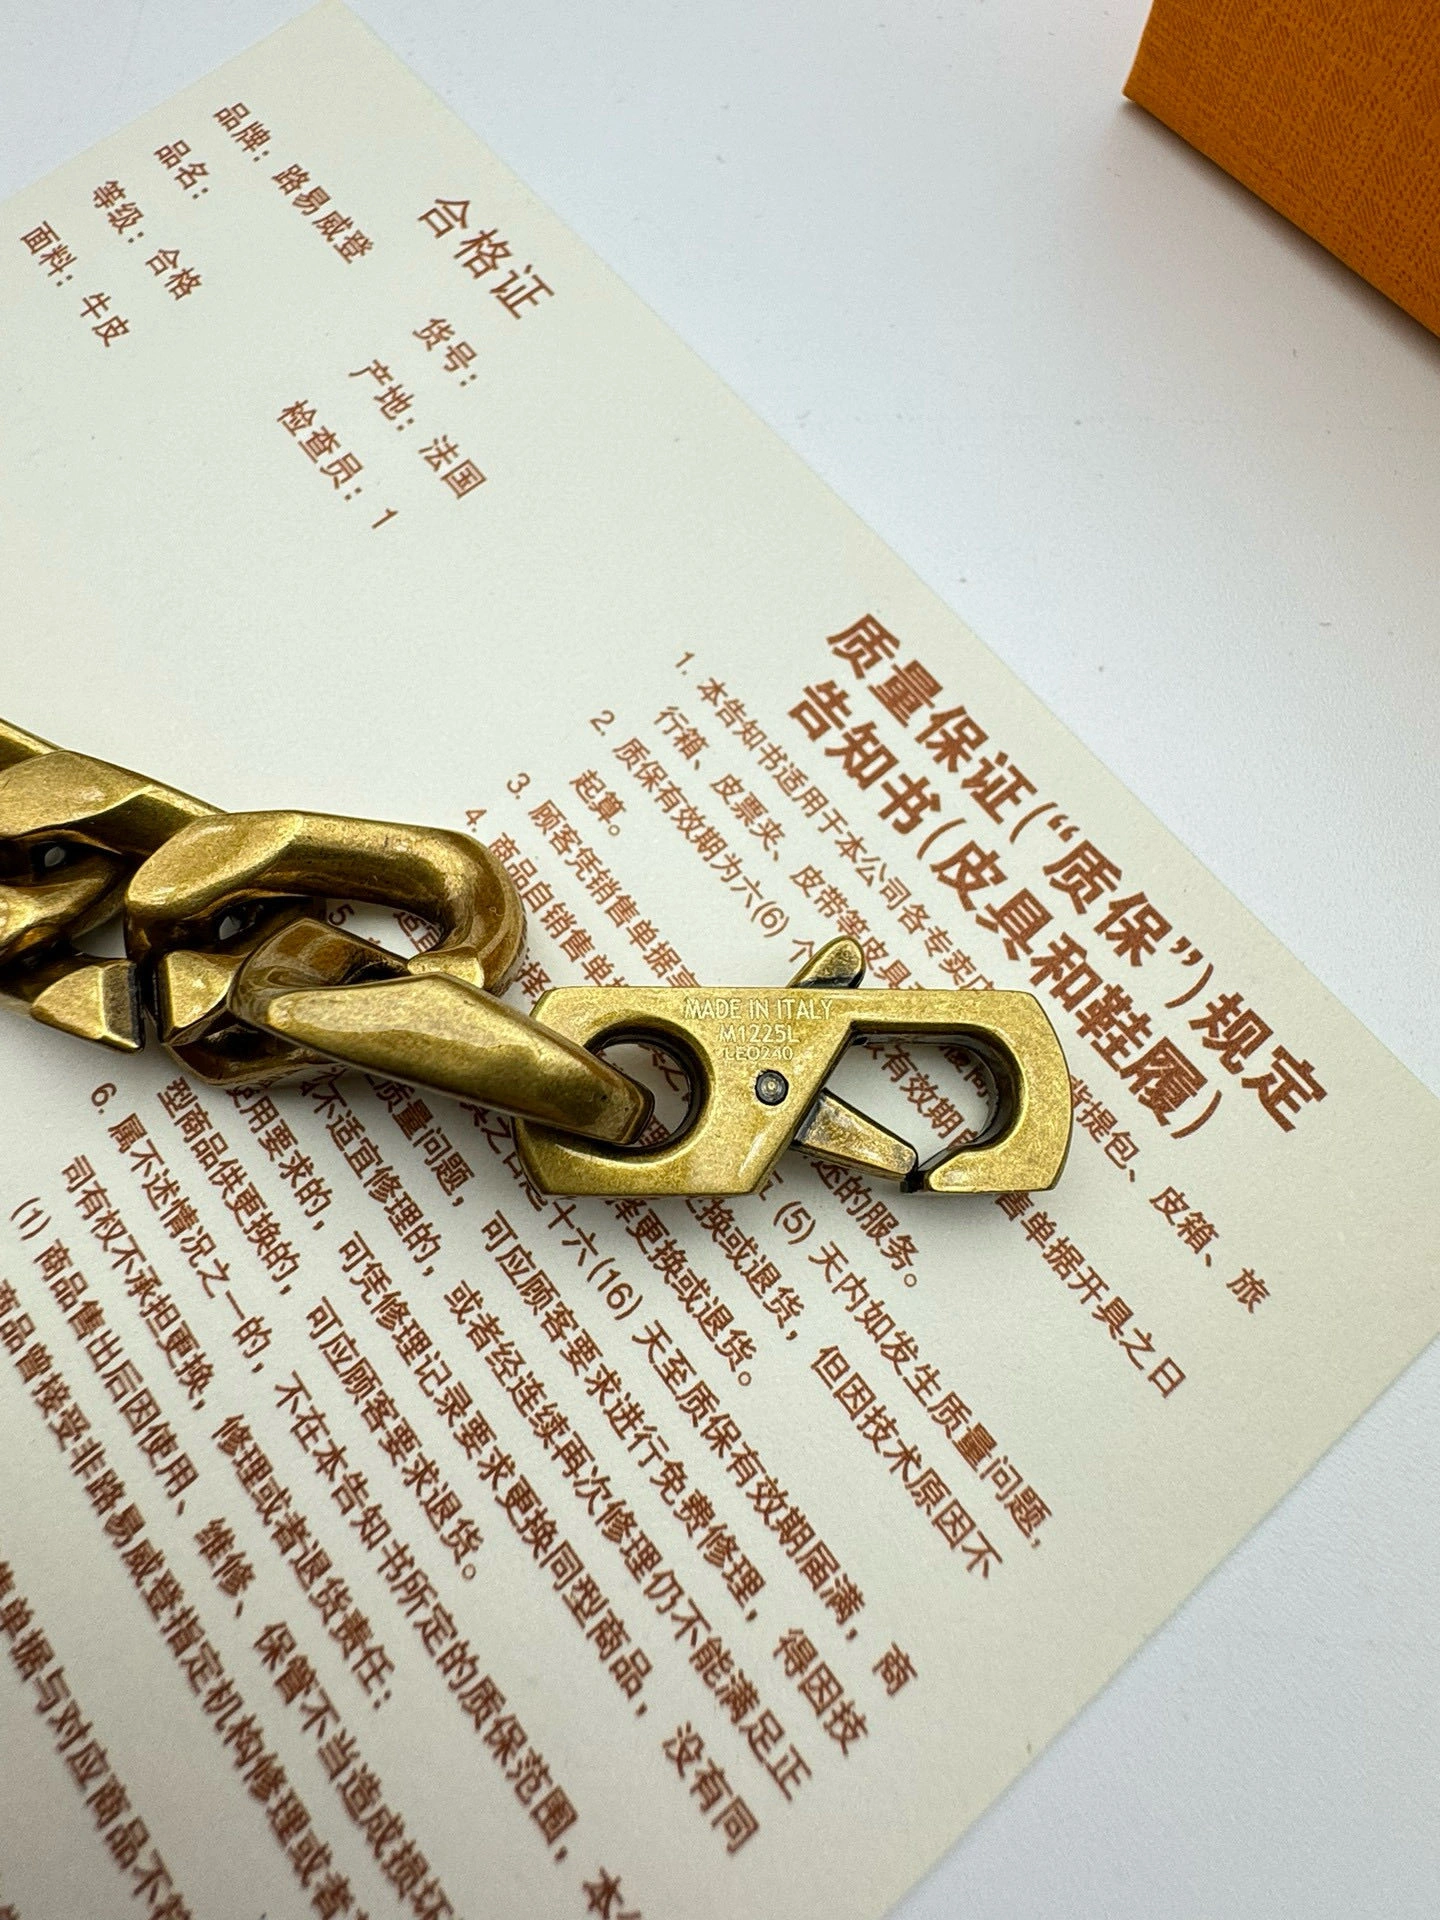 合格证
品牌：路易威登
货号：
品名：
产地：法国
等级：合格
检查员：1
面料：牛皮
质量保证(“质保”)规定
告知书(皮具和鞋履)
1. 本告知书适用于本公司各专卖店
背提包、皮箱、旅
行箱、皮票夹、皮带等皮具
2. 质保有效期为六(6) 个
有效期自
售单据开具之日
起算。
3. 顾客凭销售单据享
述的服务。
4. 商品自销售单据
(5) 天内如发生质量问题，
择更换或退货。
十六(16) 天至质保有效期届满，商
质量问题，可应顾客要求进行免费修理，得因技
不适宜修理的，或者经连续再次修理仍不能满足正
使用要求的，可凭修理记录要求更换同型商品，没有同
型商品供更换的，可应顾客要求退货。
换或退货，但因技术原因不
6. 属下述情况之一的，不在本告知书所定的质保范围，本
司有权不承担更换，修理或者退货责任：
(1) 商品售出后因使用、维修、保管不当造成损坏
商品曾接受非路易威登指定机构修理或者
售单据与对应商品不
MADE IN ITALY
M1225L
LE0240